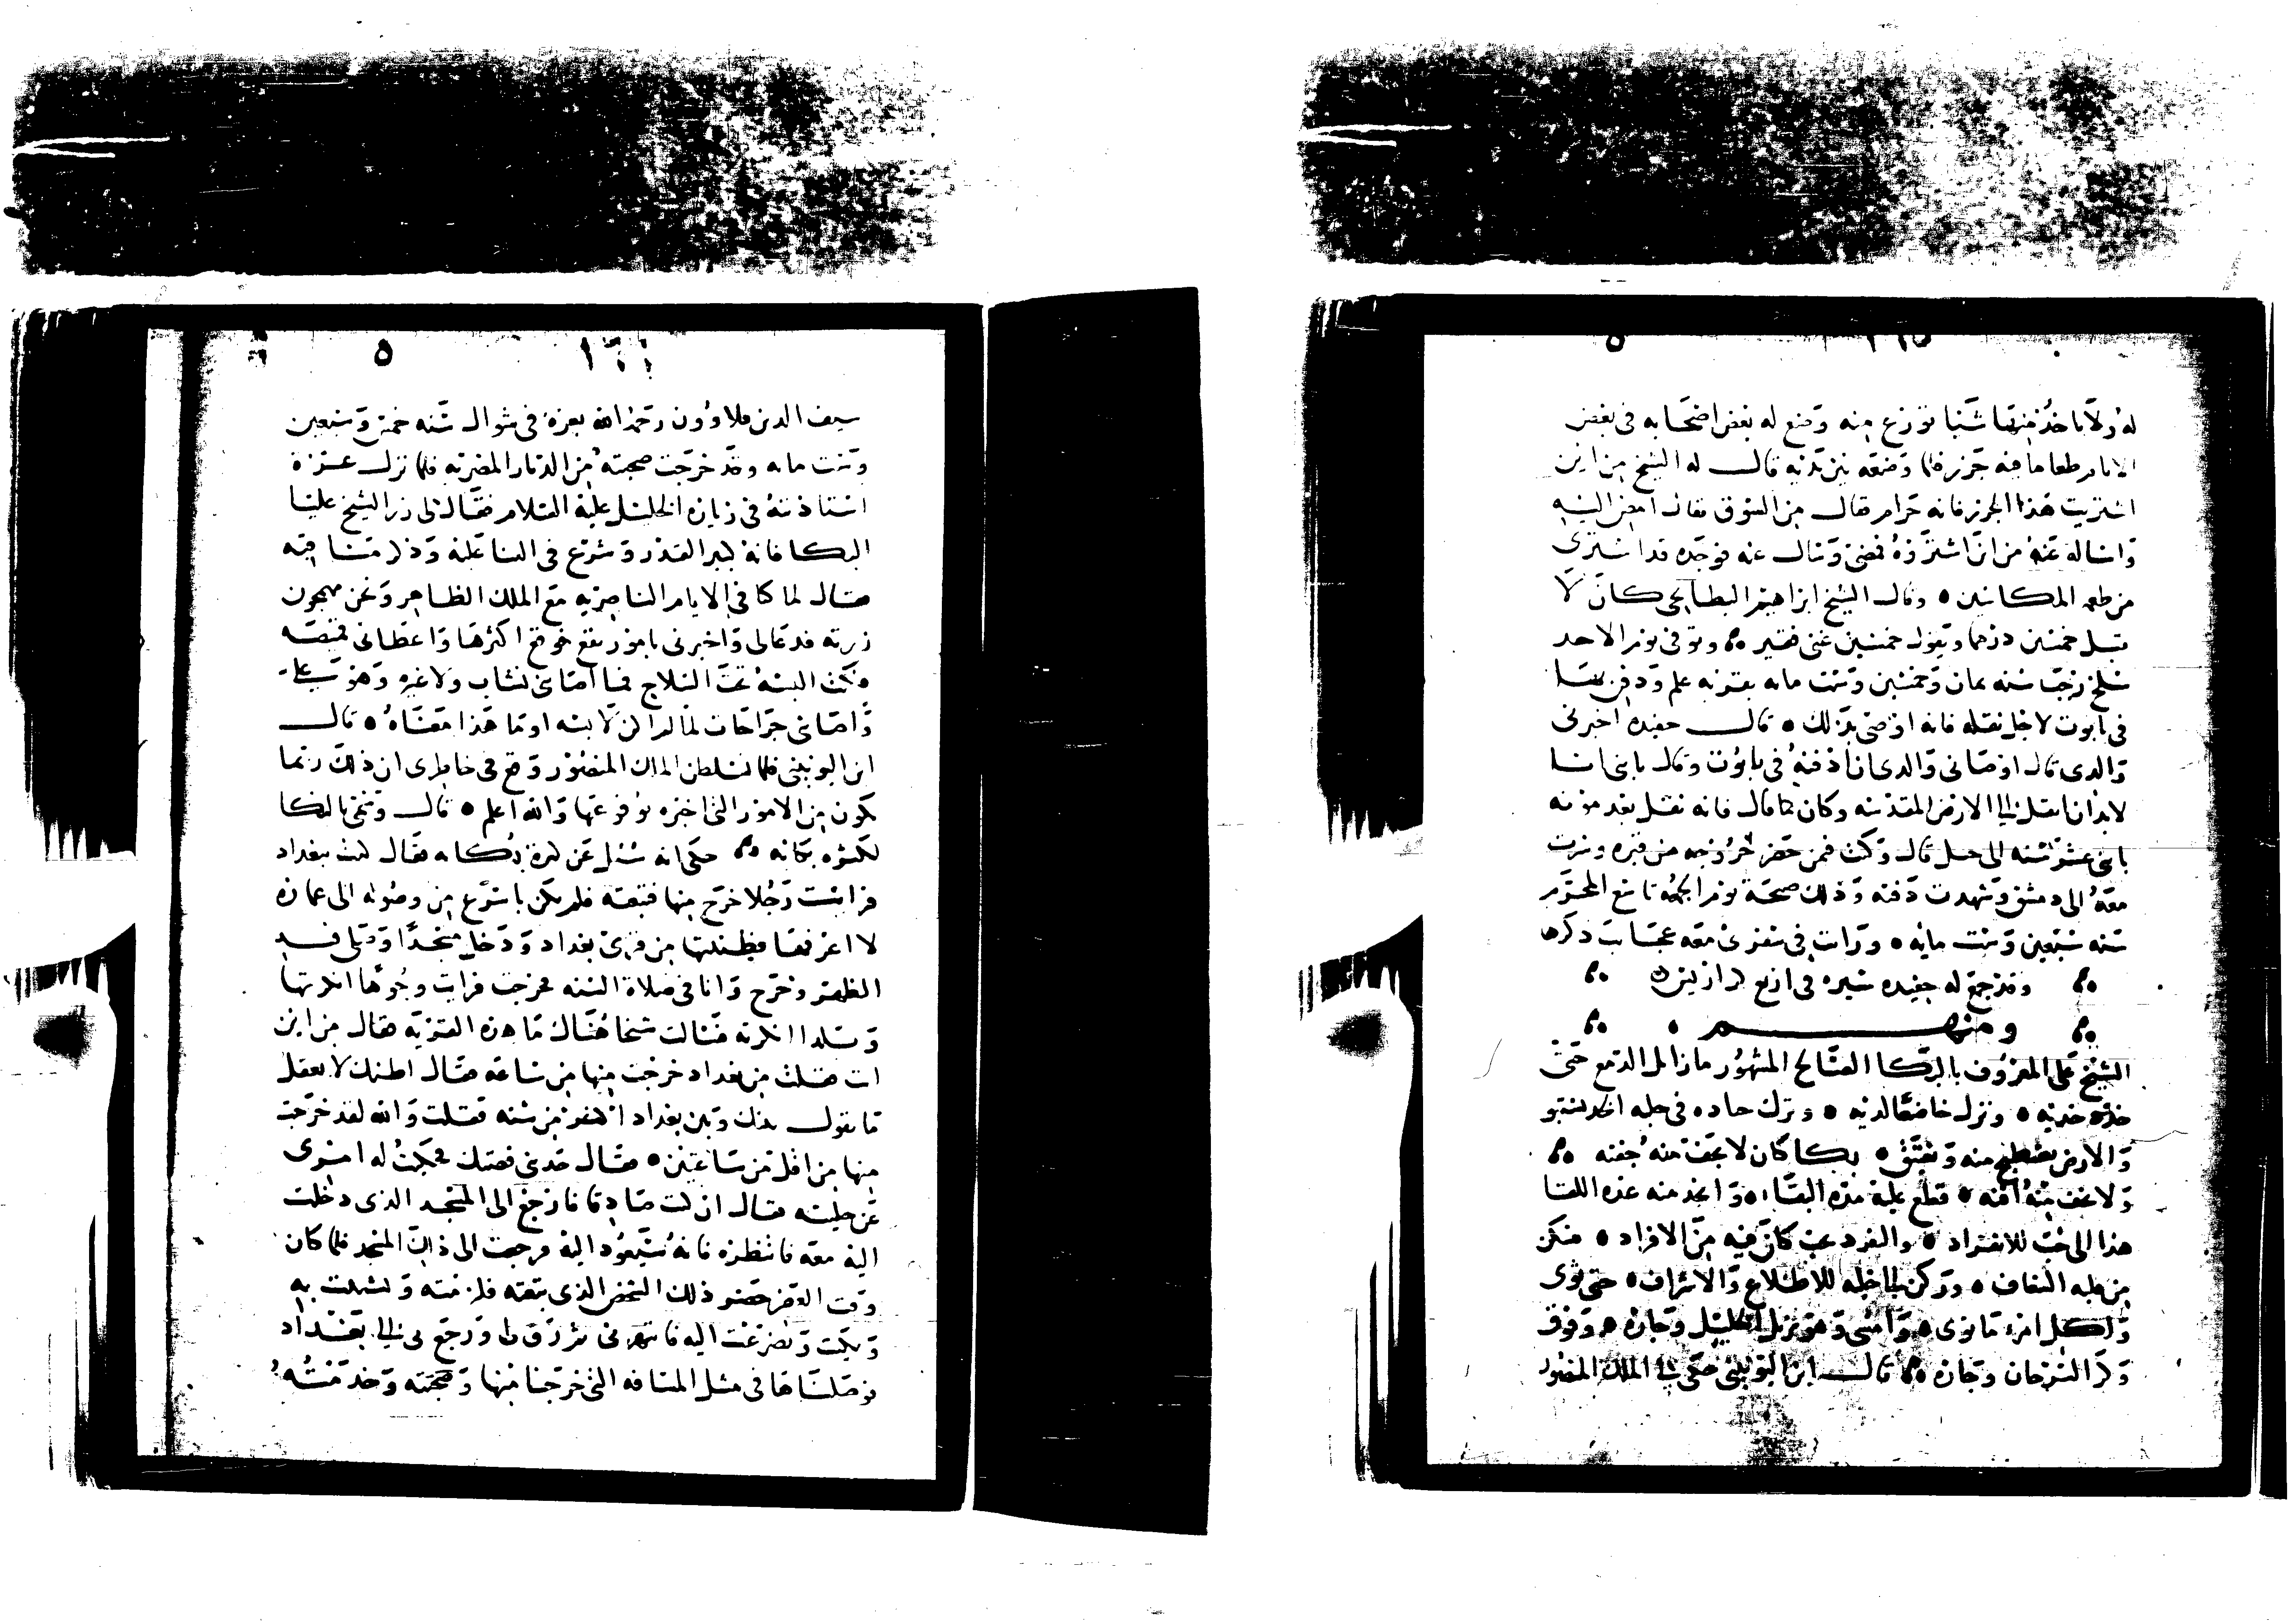 له ولا ياخذ منها شيا تورع منه وضع له بعض اصحابه في بعض
الايام طعاما فيه جزر فلما وضعه بين يديه قال له الشيخ من اين
اشتريت هذا الجزر فانه حرام قال من السوق فقال امض اليه
واساله عنه من اين اشتروه فمضى وسال عنه فوجده قد اشترى
من طعمه المكاسين ٥ وقال الشيخ ابراهيم البطايحي كان لا
يقبل خمسين درهما ويقول خمسين غنى فقير وتوفي يوم الاحد
سلخ رجب سنه ثمان وخمسين وست مايه بقريه علم ودفن بها
في تابوت لاجل نقله فانه اوصى بذلك ٥ قال حفيده اخبرني
والدي قال اوصاني والدي ان ادفنه في تابوت وقال يا بني انا
لابد ان انقل الى الارض المقدسه وكان كما قال فانه نقل بعد موته
باثنى عشر سنه الى جبل قال وكنت فيمن حضر خروجه من قبره وسرت
معه الى دمشق وشهدت دفنه وذلك صبيحة يوم الجمعه تاسع المحرم
سنه سبعين وست مايه ٥ ورايت في سفري معه عجايب ذكرها
وقد جمع له حفيده سيره في اربع كراريس ٥
ومنهم
الشيخ علي المعروف بالبكا الصالح المشهور ما زال الدمع حتى
خدد خديه ٥ ونزل خاضعا لديه ٥ وترك جاده في جلبه اخذ يستبق
والارض منه وتغبق ٥ بكا كان لا يجف منه جفنه
ولا يخف منه افنه ٥ قطع عليه مدة البقاء ٥ واخذ منه عدة اللقا
هذا الى حب للانفراد ٥ والفرد بمن كان فيه من الافراد ٥ فتكن
من جلبه الشغاف ٥ وركن الى اجله للاطلاع والاشراف ٥ حتى نوى
ولكل امرء ما نوى ٥ وامسى وهو نزيل الخليل وجاره ٥ وفوق
وكر السرحان وجاره قال ابن اليونيني حكى لي الملك المنصور
سيف الدين قلاوون رحمه الله بغزة في شوال سنه خمس وسبعين
وست مايه وقد خرجت صحبته من الديار المصريه فلما نزل غزة
استاذنته في زيارة الخليل عليه السلام فقال لي زر الشيخ عليا
البكا فانه كبير القدر وشرع في الثنا عليه وذكر مناقبه
فقال لما كنا في الايام الناصريه مع الملك الظاهر ونحن مهججون
زرته فدعا لي واخبرني بامور تقع فوقع اكثرها واعطاني قميصه
فكنت البسه تحت السلاح فما اصابني نشاب ولا غيره وهو علي
واصابني جراحات لما لم اكن لابسه او ما هذا معناه ٥ قال
ابن اليونيني فلما تسلطن الملك المنصور وقع في خاطري ان ذلك ربما
يكون من الامور التي اخبره بوقوعها والله اعلم ٥ قال وسمي بالبكا
لكثره بكائه حكى انه سئل عن كثرة بكائه فقال كنت ببغداد
فرايت رجلا خرج منها فتبعته فلم يكن باسرع من وصوله الى عماره
لا اعرفها فظننتها من قرى بغداد ودخل مسجدا وصلى فيه
الظهر وخرج وانا في صلاة السنه فخرجت فرايت وجوها انكرتها
وبلدا انكرته فسالت شخا هناك ما هذه القريه فقال من اين
انت فقلت من بغداد خرجت منها من ساعه فقال اظنك لا تعقل
ما تقول بينك وبين بغداد اكثر من سنه فقلت والله لقد خرجت
منها من اقل من ساعتين ٥ فقال حدثني قصتك فحكيت له امري
عن جليته فقال ان كنت صادقا فارجع الى المسجد الذي دخلت
اليه معه فانتظره فانه سيعود اليه فرجعت الى ذلك المسجد فلما كان
وقت العصر حضر ذلك الشخص الذي تبعته فلزمته وتشبثت به
وبكيت وتضرعت اليه فانتهرني ثم رق لي ورجع بي الى بغداد
فوصلناها في مثل المسافه التي خرجنا منها وصحبته وخدمته